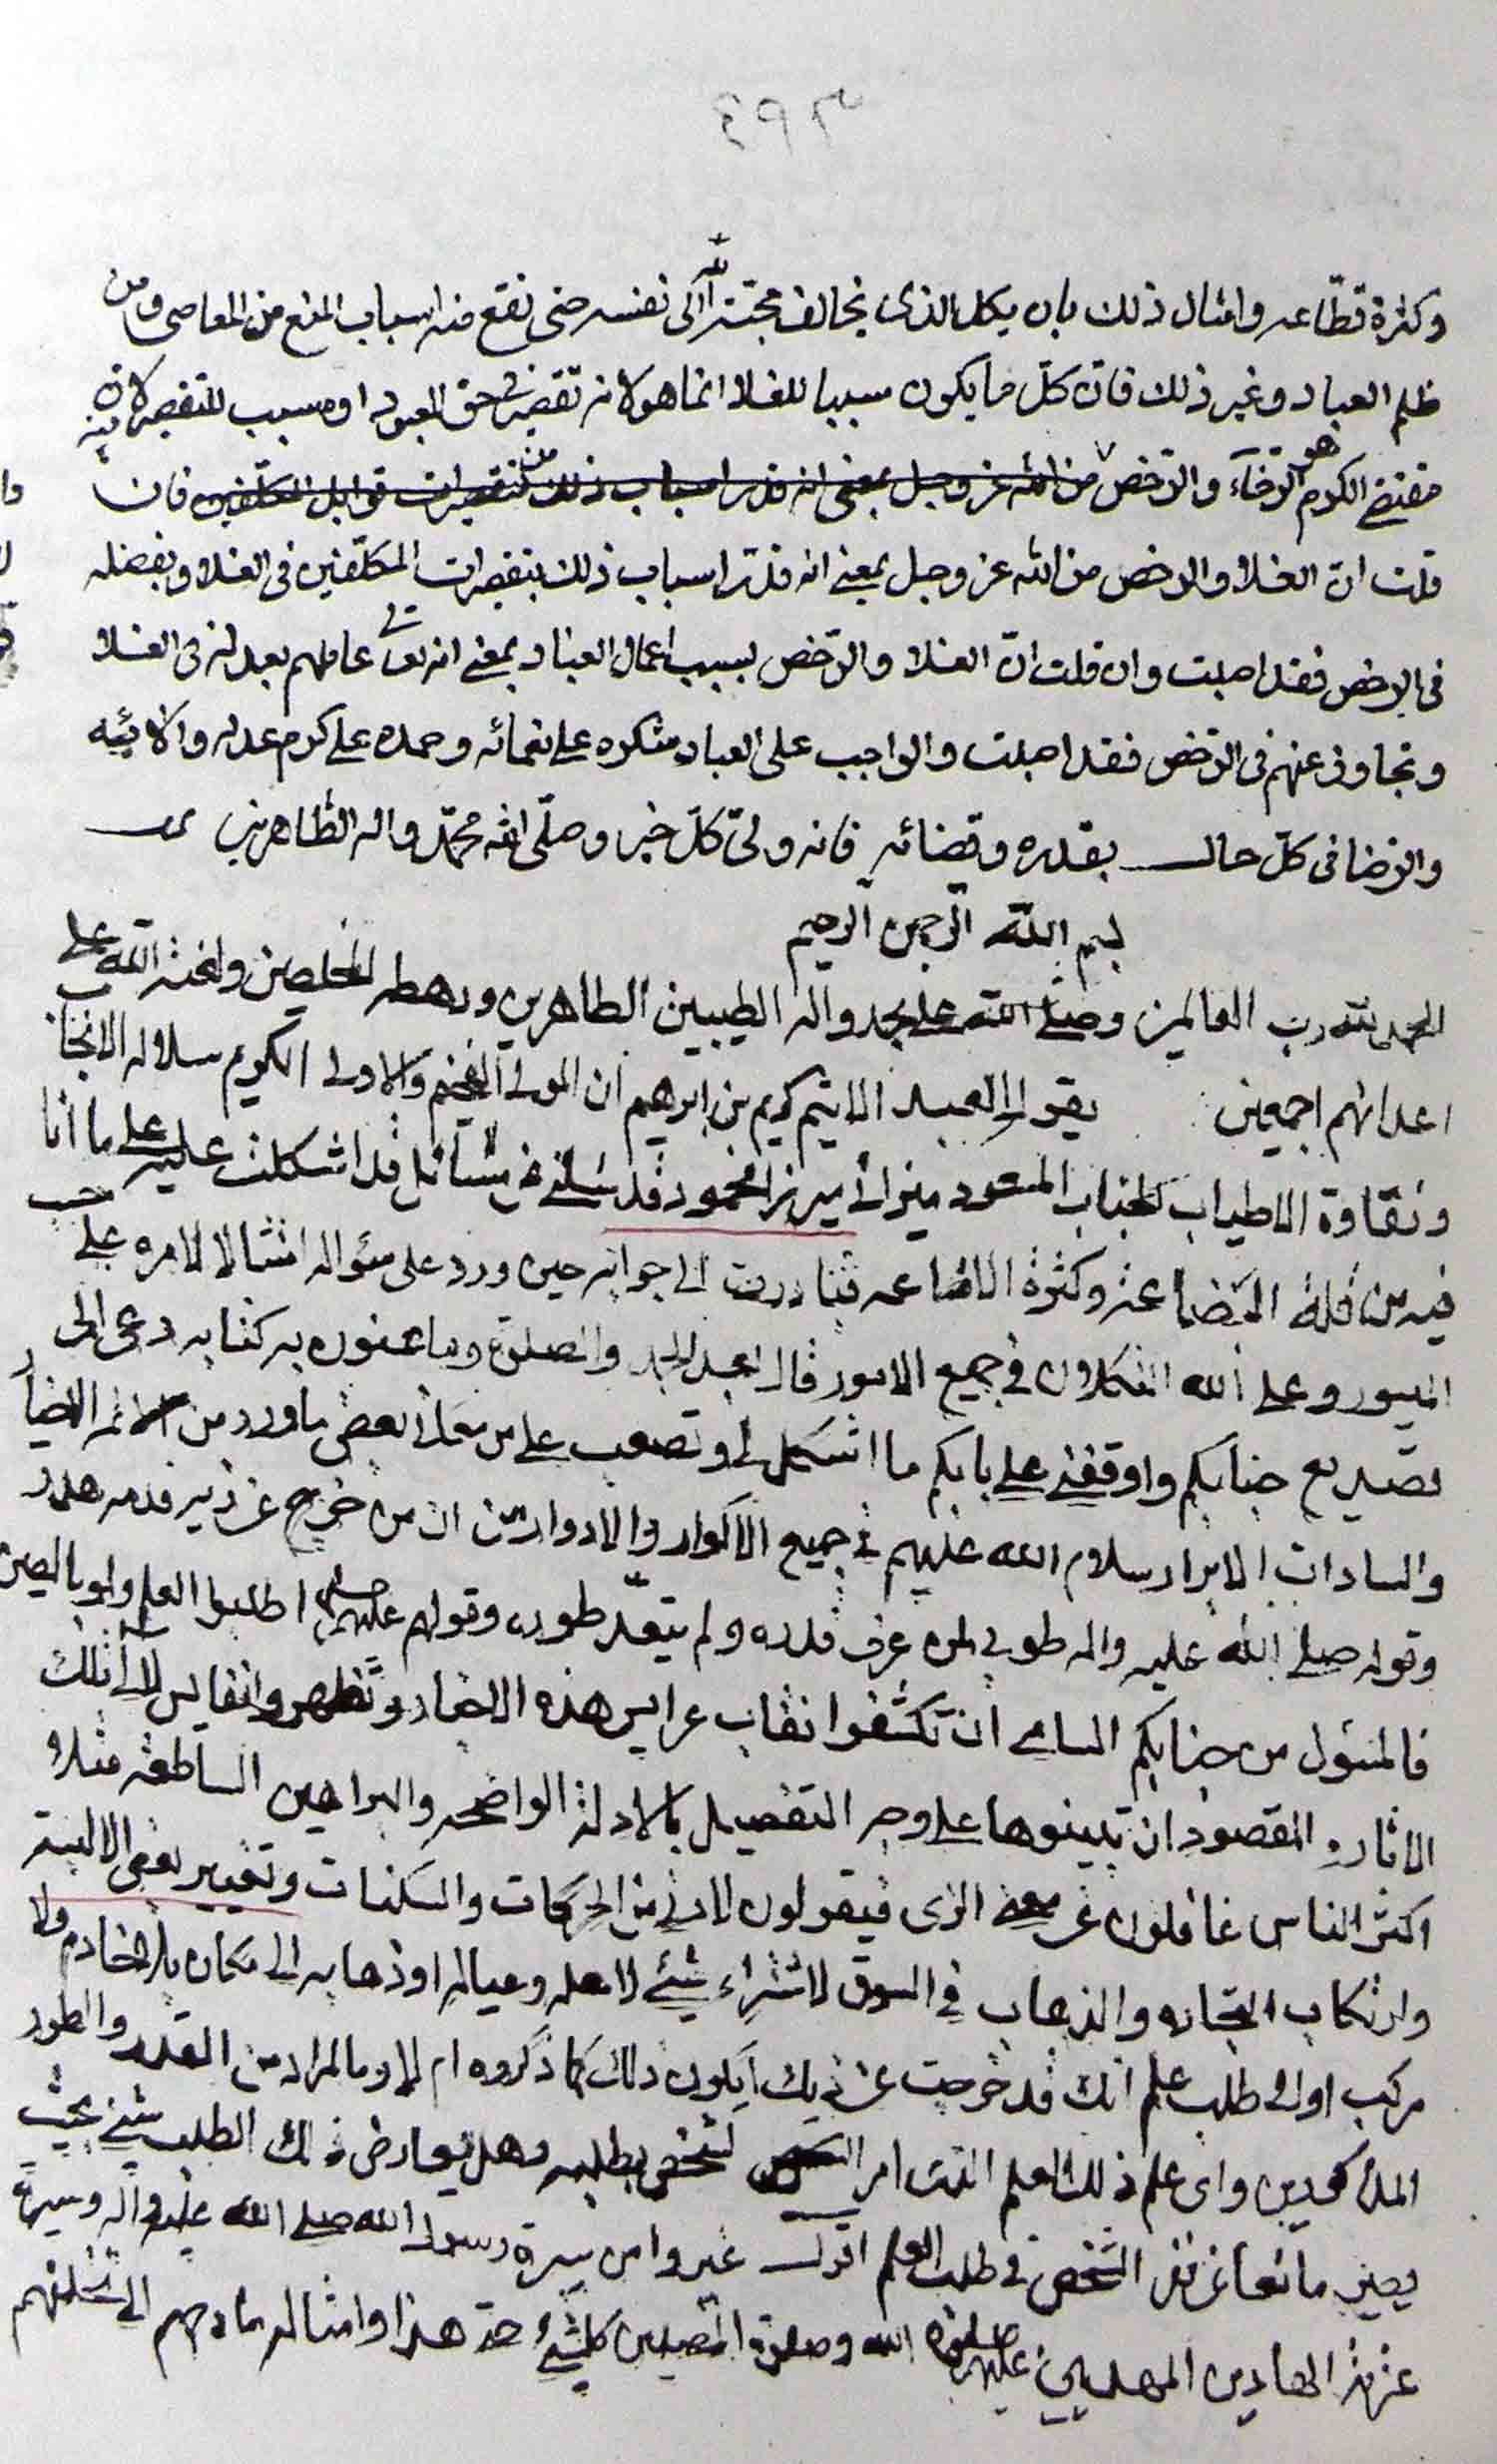 وكثرة قطّاعه وامثال ذلك بان يكل الذى يخالف محبّته لله الى نفسه حتى تقع منه اسباب المنع من المعاصى ومن
ظلم العباد وغير ذلك فان كلّ ما يكون سببا للغلا انما هو لانه تقصير فى حق المعبود او مسبب للتقصير لان
مقتضى الكرم هو الرّخآء والرّخص من الله عز وجل بمعنى انه قدر اسباب ذلك من تقصيرات قوابل المكلّفين فان
قلت ان الغلا والرخص من الله عز وجل بمعنى انه قدّر اسباب ذلك بتقصيرات المكلّفين فى الغلا وبفضله
فى الرخص فقد اصبت وان قلت انّ الغلا والرّخص بسبب اعمال العباد بمعنى انه تعالى عاملهم بعدله فى الغلا
وتجاوز عنهم فى الرّخص فقد اصبت والواجب على العباد شكره على نعمائه وحمده على كرم عدله وآلائه
والرّضا فى كلّ حال بقدره وقضائه فانه ولىّ كلّ خير وصلّى الله محمّد واله الطّاهرين
بسم الله الرّحمن الرحيم
الحمد لله رب العالمين وصلى الله على محمد واله الطيبين الطاهرين ورهطه المخلصين ولعنة الله على
اعدائهم اجمعين يقول العبد الاثيم كريم بن ابرهيم ان المولى الفخيم والاولى الكريم سلالة الانجاب
ونقاوة الاطياب الجناب المسعود ميرزا محمود قد سئلنى عن مسائل قد اشكلت عليه على ما انا
فيه من قلة البضاعة وكثرة الاضاعه فبادرت الى جوابه حين ورد على سؤاله امتثالا لامره على حسب
الميسور وعلى الله التكلان فى جميع الامور قال بعد الحمد والصلوة وما عنون به كتابه دعى الى
تصديع جنابكم واوقفنى على بابكم ما اشكل لى وتصعب على من بعض ما ورد من الائمة الاخيار
والسادات الابرار سلام الله عليهم فى جميع الاكوار والادوار من ان من خرج عن زيه فدمه هدر
وقوله صلى الله عليه واله طوبى لمن عرف قدره ولم يتعدّ طوره وقولهم عليهم اطلبوا العلم ولو بالصين
فالمسئول من جنابكم السامى ان تكشفوا نقاب عرايس هذه الاخبار وتظهروا نفايس لآلى تلك
الاثار والمقصود ان تبينوها على وجه التفصيل بالادلة الواضحه والبراهين الساطعه مثلا
اكثر الناس غافلون عن معنى الزى فيقولون لادنى من الحركات والسكنات وتغيير بعض الالبسة
وارتكاب التجاره والذهاب فى السوق لاشتراء شئ لاهله وعياله او ذهابه الى مكان بلا خادم ولا
مركب او الى طلب علم انك قد خرجت عن زيك ايكون ذلك كما ذكروه ام لا وما المراد من القدر والطور
المذكورين واى علم ذلك العلم الذى امر الشخص بطلبه وهل يعارض ذلك الطلب شئ بحيث
يصير مانعا عن نفر الشخص فى طلب العلم اقول غيروا من سيرة رسول الله صلى الله عليه واله وسيرة
عترته الهادين المهديين عليهم صلوة الله وصلوة المصلين كل شئ حتى هذا وامثاله مما دعاهم الى تخلفهم